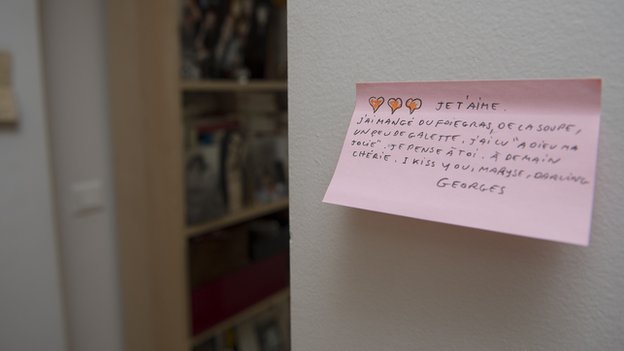 JE T'AIME.
J'AI MANGÉ DU FOIE GRAS, DE LA SOUPE,
UN PEU DE GALETTE, J'AI LU "ADIEU MA
JOLIE". JE PENSE À TOI. À DEMAIN
CHÉRIE. I KISS YOU, MARYSE, DARLING
GEORGES